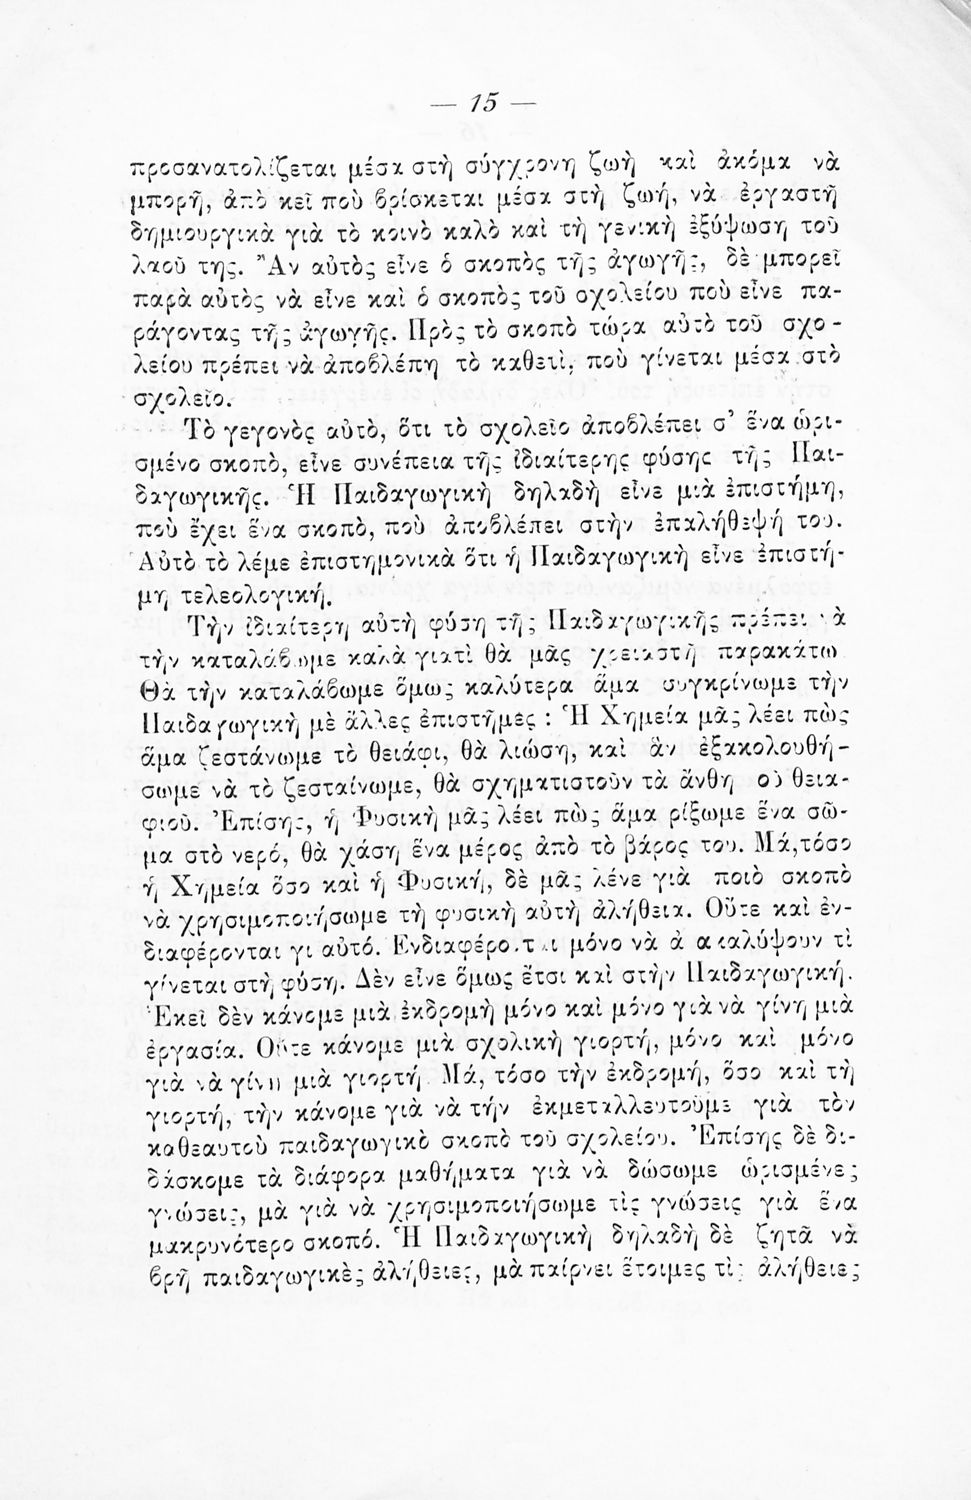 — 15 —
προσανατολίζεται μέσα στὴ σύγχρονη ζωὴ καὶ ἀκόμα νὰ
μπορῇ, ἀπὸ κεῖ ποὺ βρίσκεται μέσα στὴ ζωή, νὰ ἐργαστῇ
δημιουργικὰ γιὰ τὸ κοινὸ καλὸ καὶ τὴ γενικὴ ἐξύψωση τοῦ
λαοῦ της. Ἂν αὐτὸς εἶνε ὁ σκοπὸς τῆς ἀγωγῆς, δὲ μπορεῖ
παρὰ αὐτὸς νὰ εἶνε καὶ ὁ σκοπὸς τοῦ σχολείου ποὺ εἶνε πα-
ράγοντας τῆς ἀγωγῆς. Πρὸς τὸ σκοπὸ τώρα αὐτὸ τοῦ σχο-
λείου πρέπει νὰ ἀποβλέπῃ τὸ καθετί, ποὺ γίνεται μέσα στὸ
σχολεῖο.
Τὸ γεγονὸς αὐτὸ, ὅτι τὸ σχολεῖο ἀποβλέπει σ' ἕνα ὡρι-
σμένο σκοπὸ, εἶνε συνέπεια τῆς ἰδιαίτερης φύσης τῆς Παι-
δαγωγικῆς. Ἡ Παιδαγωγικὴ δηλαδὴ εἶνε μιὰ ἐπιστήμη,
ποὺ ἔχει ἕνα σκοπὸ, ποὺ ἀποβλέπει στὴν ἐπαλήθεψή του.
Αὐτὸ τὸ λέμε ἐπιστημονικὰ ὅτι ἡ Παιδαγωγικὴ εἶνε ἐπιστή-
μη τελεολογική.
Τὴν ἰδιαίτερη αὐτὴ φύση τῆς Παιδαγωγικῆς πρέπει νὰ
τὴν καταλάβωμε καλὰ γιατὶ θὰ μᾶς χρειαστῇ παρακάτω
Θὰ τὴν καταλάβωμε ὅμως καλύτερα ἅμα συγκρίνωμε τὴν
Παιδαγωγικὴ μὲ ἄλλες ἐπιστῆμες : Ἡ Χημεία μᾶς λέει πὼς
ἅμα ζεστάνωμε τὸ θειάφι, θὰ λιώση, καὶ ἂν ἐξακολουθή-
σωμε νὰ τὸ ζεσταίνωμε, θὰ σχηματιστοῦν τὰ ἄνθη οῦ θεια-
φιοῦ. Ἐπίσης, ἡ Φυσικὴ μᾶς λέει πὼς ἅμα ρίξωμε ἕνα σῶ-
μα στὸ νερό, θὰ χάση ἕνα μέρος ἀπὸ τὸ βάρος του. Μά, τόσο
ἡ Χημεία ὅσο καὶ ἡ Φυσική, δὲ μᾶς λένε γιὰ ποιὸ σκοπὸ
νὰ χρησιμοποιήσωμε τὴ φυσικὴ αὐτὴ ἀλήθεια. Οὔτε καὶ ἐν-
διαφέρονται γι αὐτό. Ἐνδιαφέρονται μόνο νὰ ἀνακαλύψουν τὶ
γίνεται στὴ φύση. Δὲν εἶνε ὅμως ἔτσι καὶ στὴν Παιδαγωγική.
Ἐκεῖ δὲν κάνομε μιὰ ἐκδρομὴ μόνο καὶ μόνο γιὰ νὰ γίνη μιὰ
ἐργασία. Οὔτε κάνομε μιὰ σχολικὴ γιορτή, μόνο καὶ μόνο
γιὰ νὰ γίνη μιὰ γιορτή. Μά, τόσο τὴν ἐκδρομή, ὅσο καὶ τὴ
γιορτή, τὴν κάνομε γιὰ νὰ τήν ἐκμεταλλευτοῦμε γιὰ τὸν
καθεαυτοὺ παιδαγωγικὸ σκοπὸ τοῦ σχολείου. Ἐπίσης δὲ δι-
δάσκομε τὰ διάφορα μαθήματα γιὰ νὰ δώσωμε ὡρισμένες
γνώσεις, μὰ γιὰ νὰ χρησιμοποιήσωμε τὶς γνώσεις γιὰ ἕνα
μακρυνότερο σκοπό. Ἡ Παιδαγωγικὴ δηλαδὴ δὲ ζητᾶ νὰ
βρῆ παιδαγωγικὲς ἀλήθειες, μὰ παίρνει ἕτοιμες τὶς ἀλήθειες